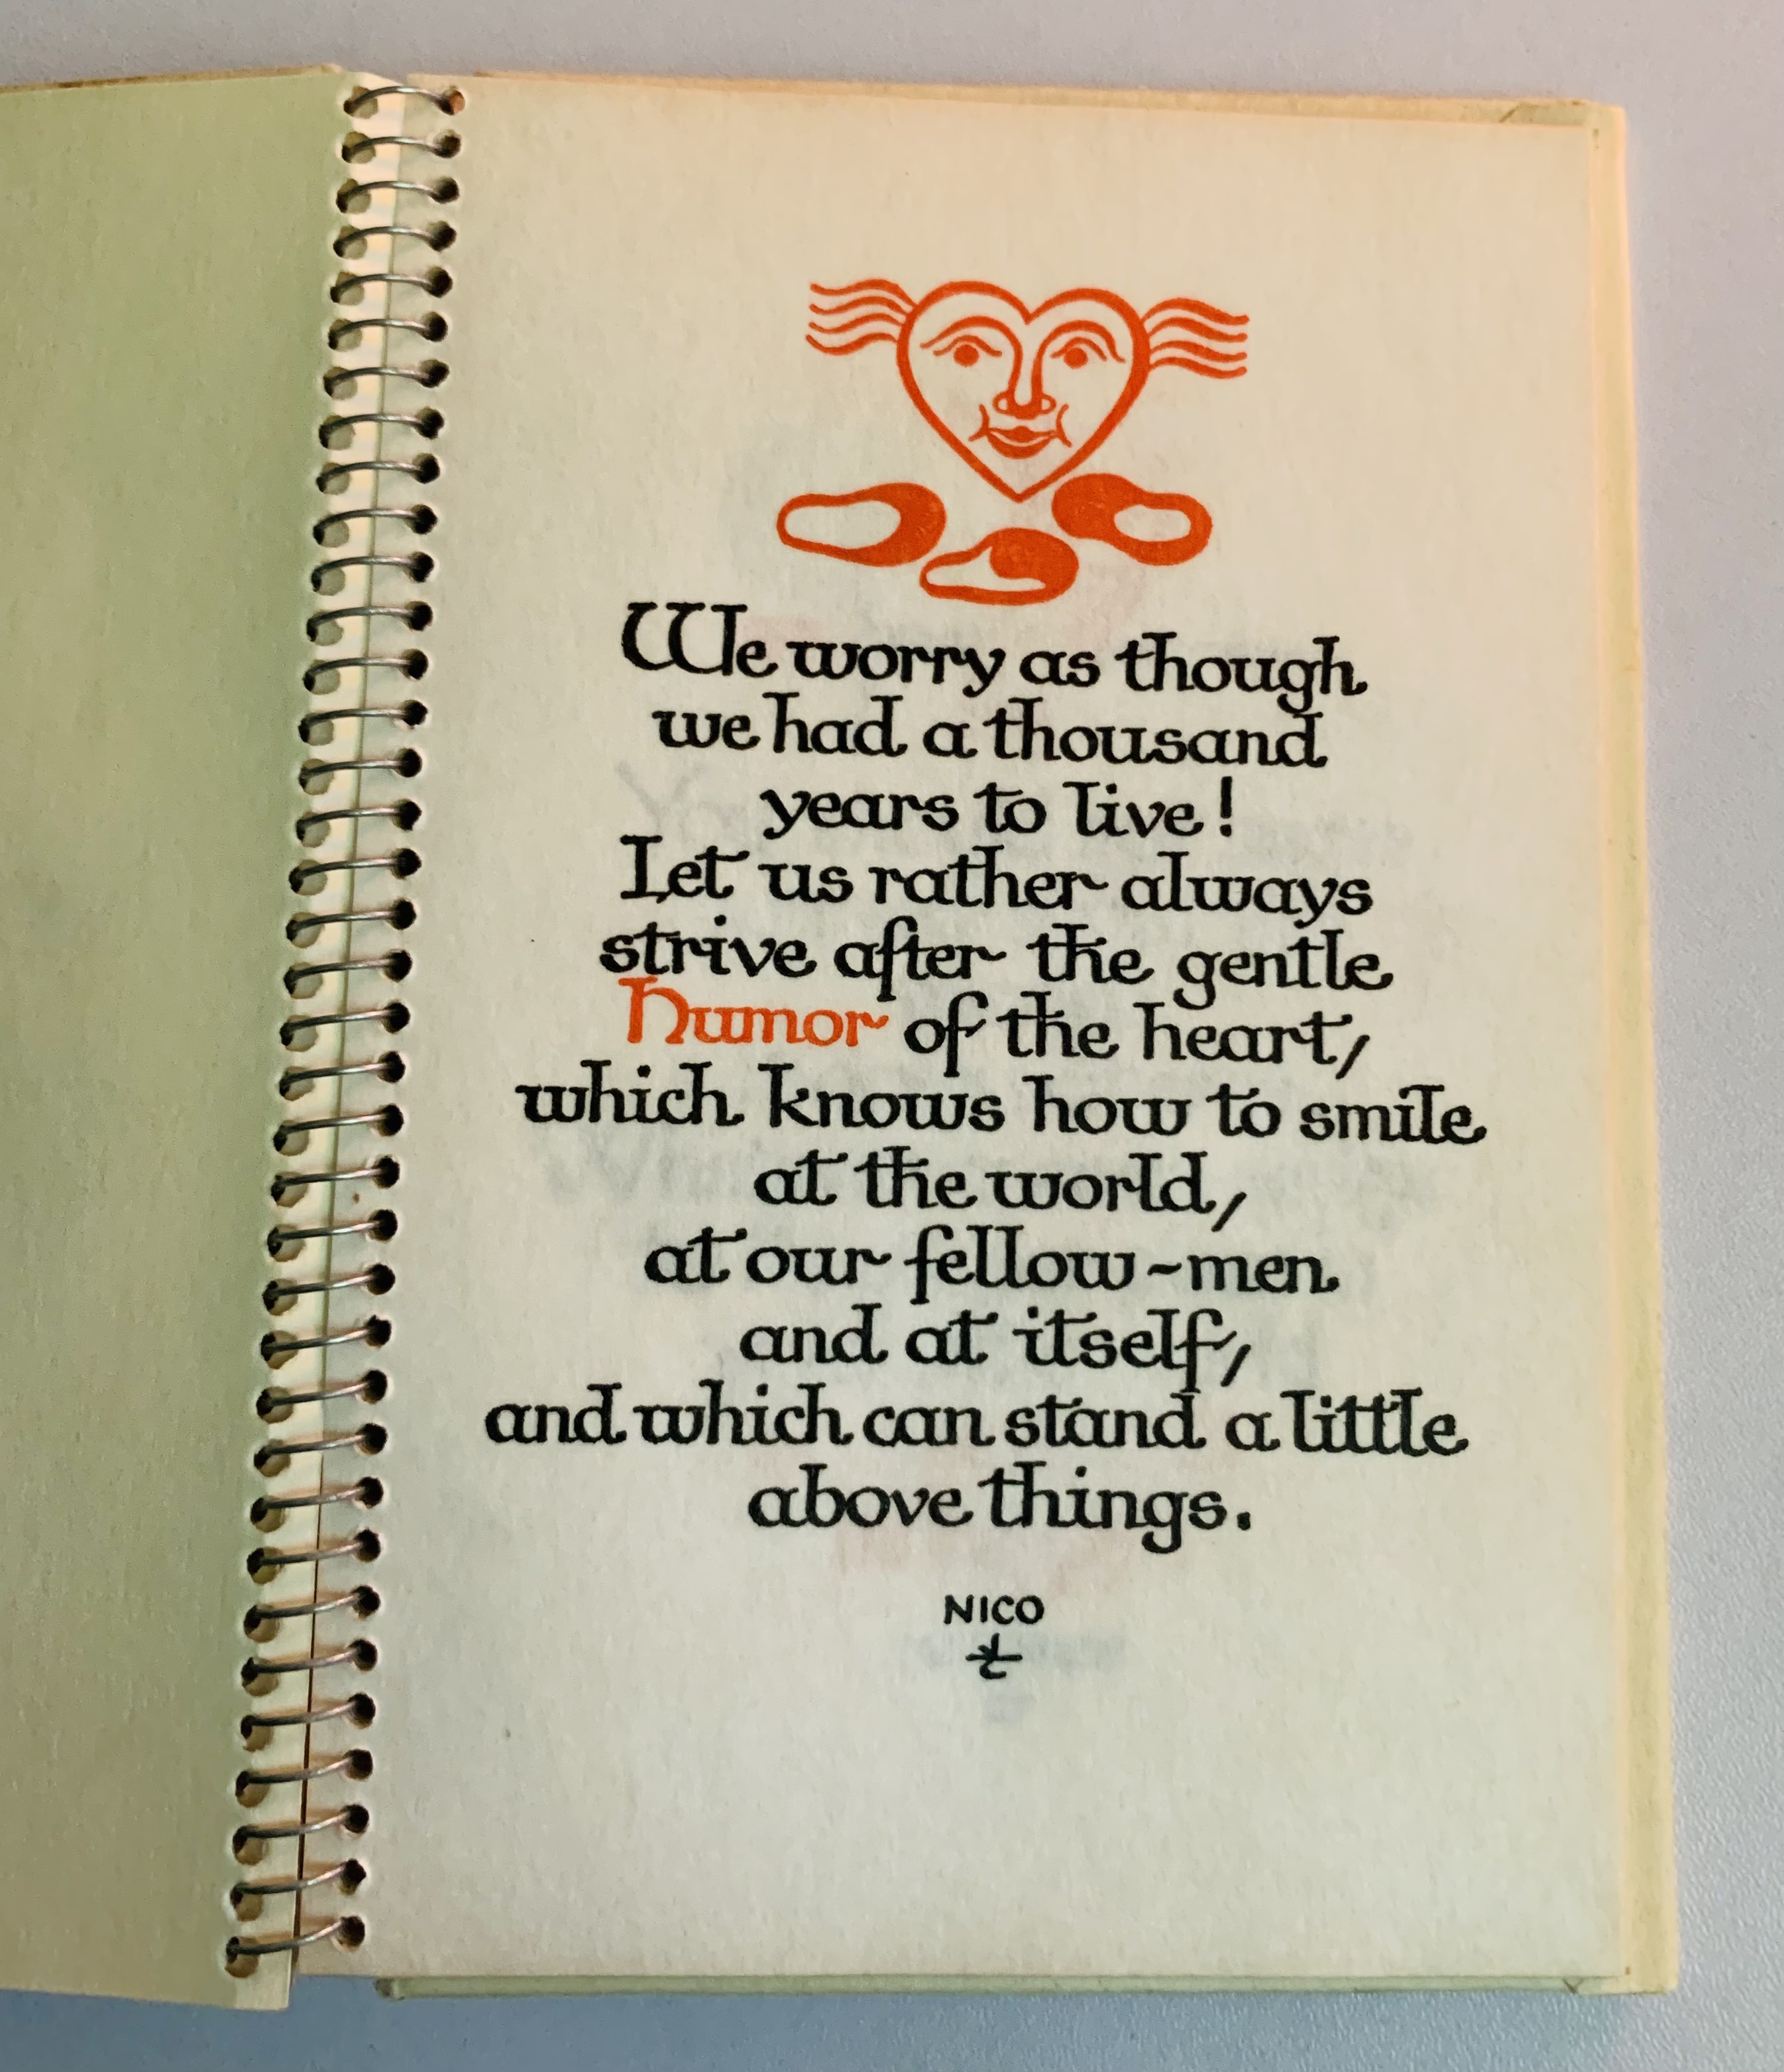 We worry as though
we had a thousand
years to live!
Let us rather always
strive after the gentle
Humor of the heart,
which knows how to smile
at the world,
at our fellow-men
and at itself,
and which can stand a little
above things.
NICO